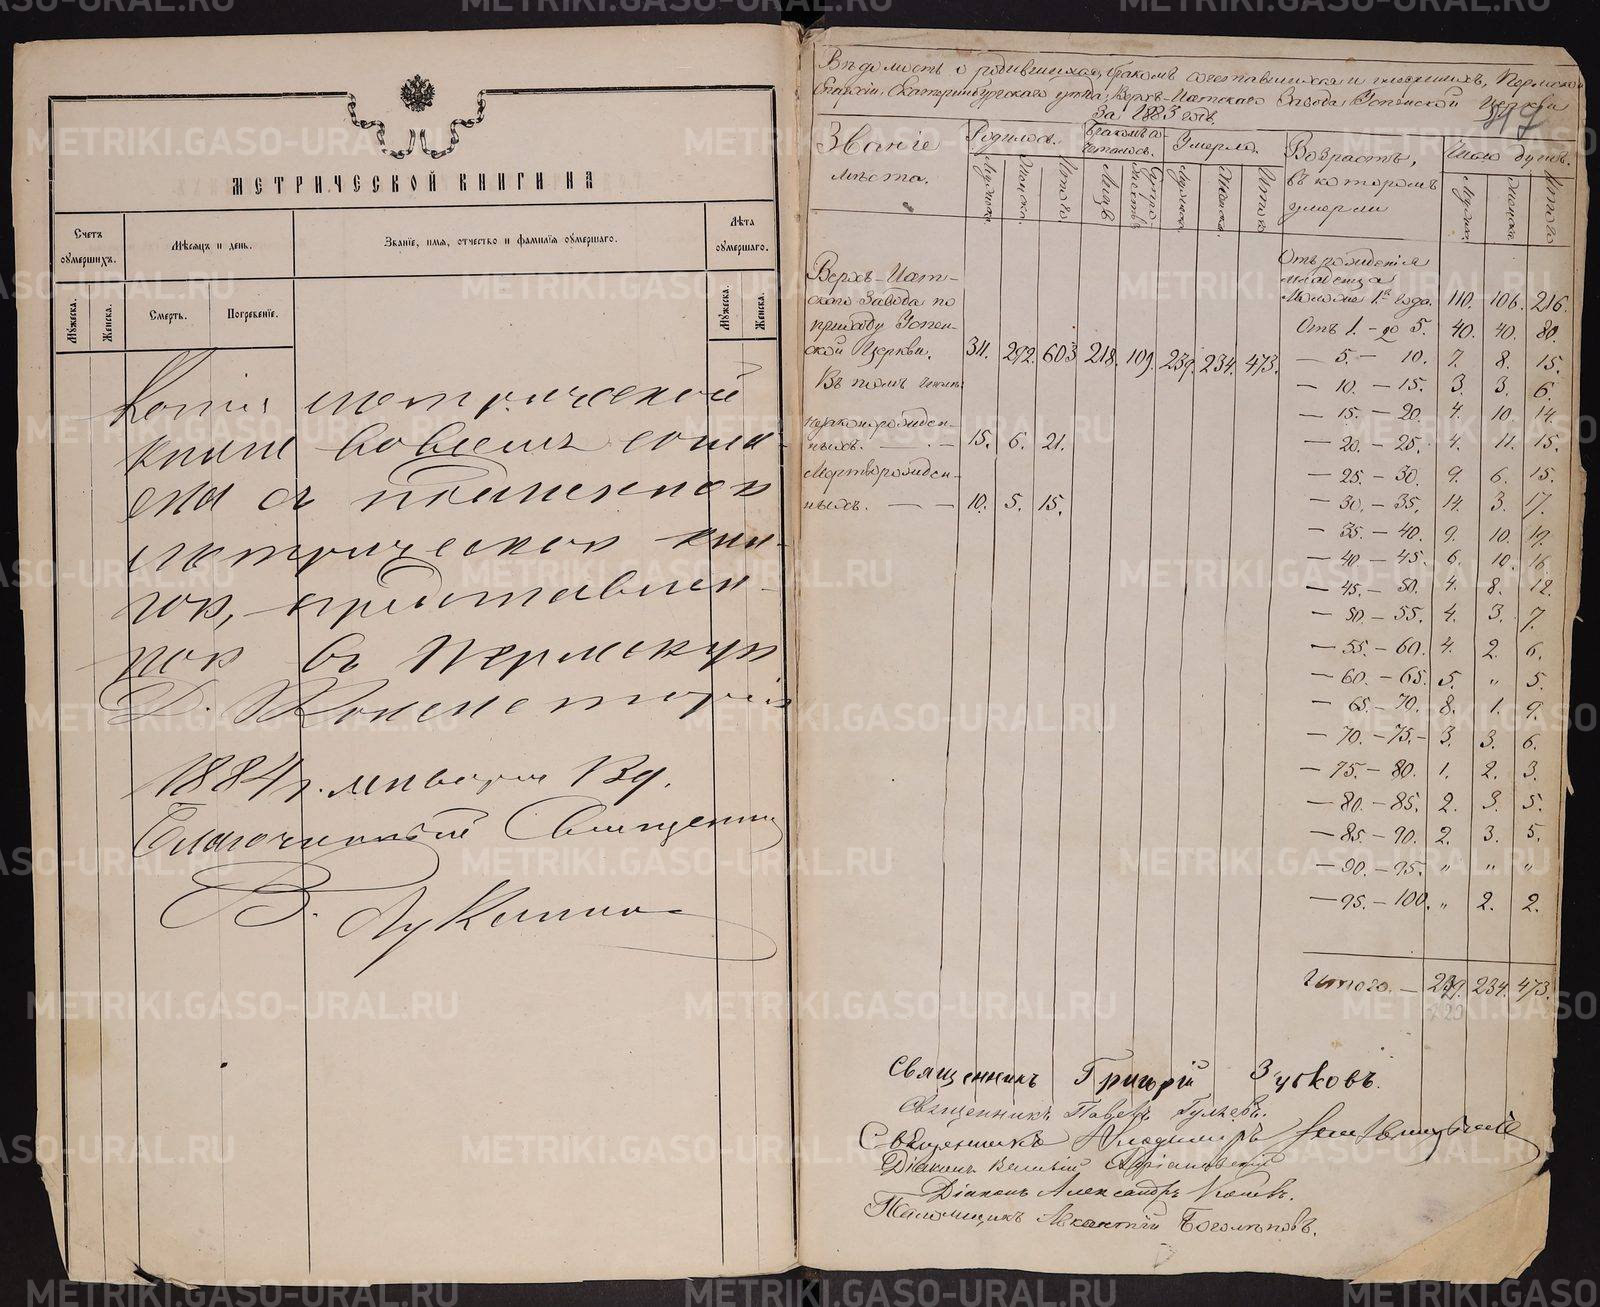 МЕТРИЧЕСКОЙ КНИГИ НА
Счетъ оумершихъ.
Мѣсяцъ и день.
Званіе, имя, отчество и фамилія оумершаго.
Лѣта оумершаго.
Мужеска.
Женска.
Смерть.
Погребеніе.
Мужеска.
Женска.
Копія метрической
книги вовсемъ согла-
сна съ подлинной
метрической кни-
гой, представлен-
ной въ Пермскую
Д. Консисторію
1884 г. января 13 д.
Благочинный Священник
В. Лукинъ
Вѣдомость о родившихся, бракомъ сочетавшихся и умершихъ, Пермской
Епархіи, Екатеринбургскаго уѣзда, Верхъ-Исетскаго Завода, Успенской церкви
за 1883 годъ.
Званіе мѣста.
Родилось.
Бракомъ сочеталось.
Умерло.
Возрастъ, въ которомъ умерли
Число душъ.
Мужска Женска Итого Лицъ Мужска Женска Итого Мужск. Женска Итого
Отъ рожденія
младенца
Моложе 1го года. 110. 106. 216.
Отъ 1. – до 5. 40. 40. 80.
— 5. – 10. 7. 8. 15.
— 10. – 15. 3. 3. 6.
— 15. – 20. 4. 10. 14.
— 20. – 25. 4. 11. 15.
— 25. – 30. 9. 6. 15.
— 30. – 35. 14. 3. 17.
— 35. – 40. 9. 10. 19.
— 40 – 45. 6. 10. 16.
— 45. – 50. 4. 8. 12.
— 50. – 55. 4. 3. 7.
— 55. – 60. 4. 2. 6.
— 60. – 65. 5. „ 5.
— 65. – 70. 8. 1. 9.
— 70. – 75. – 3. 3. 6.
— 75. – 80. 1. 2. 3.
— 80. – 85. 2. 3. 5.
— 85. – 90. 2. 3. 5.
— 90. – 95. „ „ „
— 95. – 100. „ 2. 2.
Итого. — 239. 234. 473.
Верхъ-Исет-
скаго Завода по
приходу Успен-
ской Церкви. 311. 292. 603. 218. 109. 239. 234. 473.
Въ томъ числѣ
незаконорожден-
ныхъ. — — 15. 6. 21.
Мертворожден-
ныхъ. — — 10. 5. 15.
Священникъ Григорій Зубковъ.
Священникъ Павелъ Гуляевъ.
Священникъ Владимиръ
Діаконъ
Діаконъ Александръ Поповъ.
Псаломщикъ Боголѣповъ.
METRIKI.GASO-URAL.RU